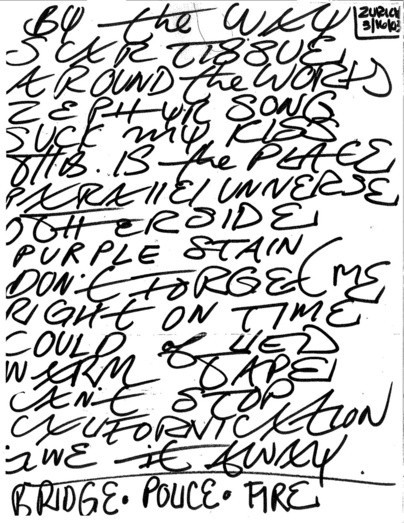 BY the WAY
ZURICH
3/16/03
SCAR TISSUE
AROUND the WORLD
ZEPHYR SONG
SUCK MY KISS
THIS IS the PLACE
PARALLEL UNIVERSE
OTHERSIDE
PURPLE STAIN
DON'T FORGET ME
RIGHT ON TIME
COULD HAVE LIED
WARM TAPE
CAN'T STOP
CALIFORNICATION
GIVE IT AWAY
BRIDGE. POLICE. FIRE